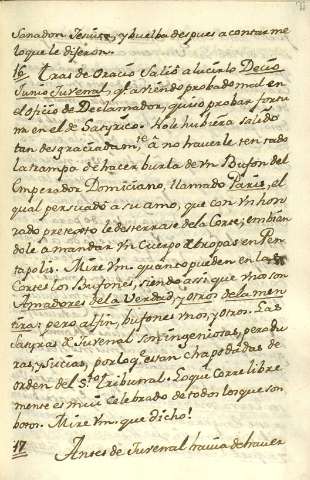 Senador Señor, y buelba despues a contarme
lo que le dijeron.
16 Tras de Oracio Salio a lucirlo Decio
Junio Juvenal, q. aviendo probado mal en
el oficio de Declamador, quiso probar fortu
na en el de Satyrico. No le hubiera salido
tan desgraciadamte. a no haverle tentado
la trampa de hacer burla de Vn Bufon del
Emperador Domiciano, llamado Paris, el
qual persuadio a su amo, que con Vn hon
rado pretexto le desterrase de la Corte, embian
dole a mandar Vn Cuerpo de tropas en Pen
tapolis. Mire Vm. quanto pueden en las
Cortes los Bufones, siendo assi que Vnos son
Amadores de la Verdad, y otros de la men
tira; pero al fin, bufones Vnos, y otros. Las
Satyras de Juvenal son ingeniosas, pero du
ras, y sucias, por lo q.e estan chapodadas de
orden del Sto. Tribunal. Lo que corre libre
mente es mui celebrado de todos los que son
botos. Mire Vm. que dicho!
17 Antes de Juvenal havia de haver